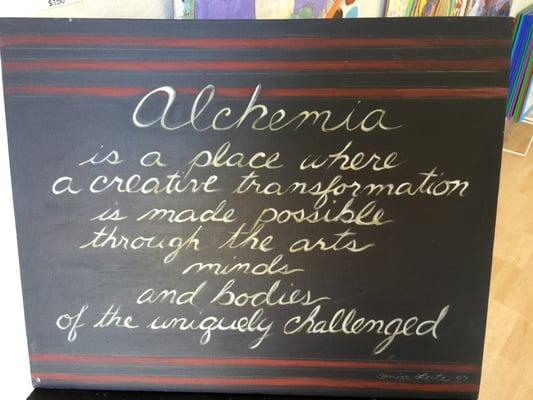 $150
Alchemia
is a place where
a creative transformation
is made possible
through the arts
minds
and bodies
of the uniquely challenged